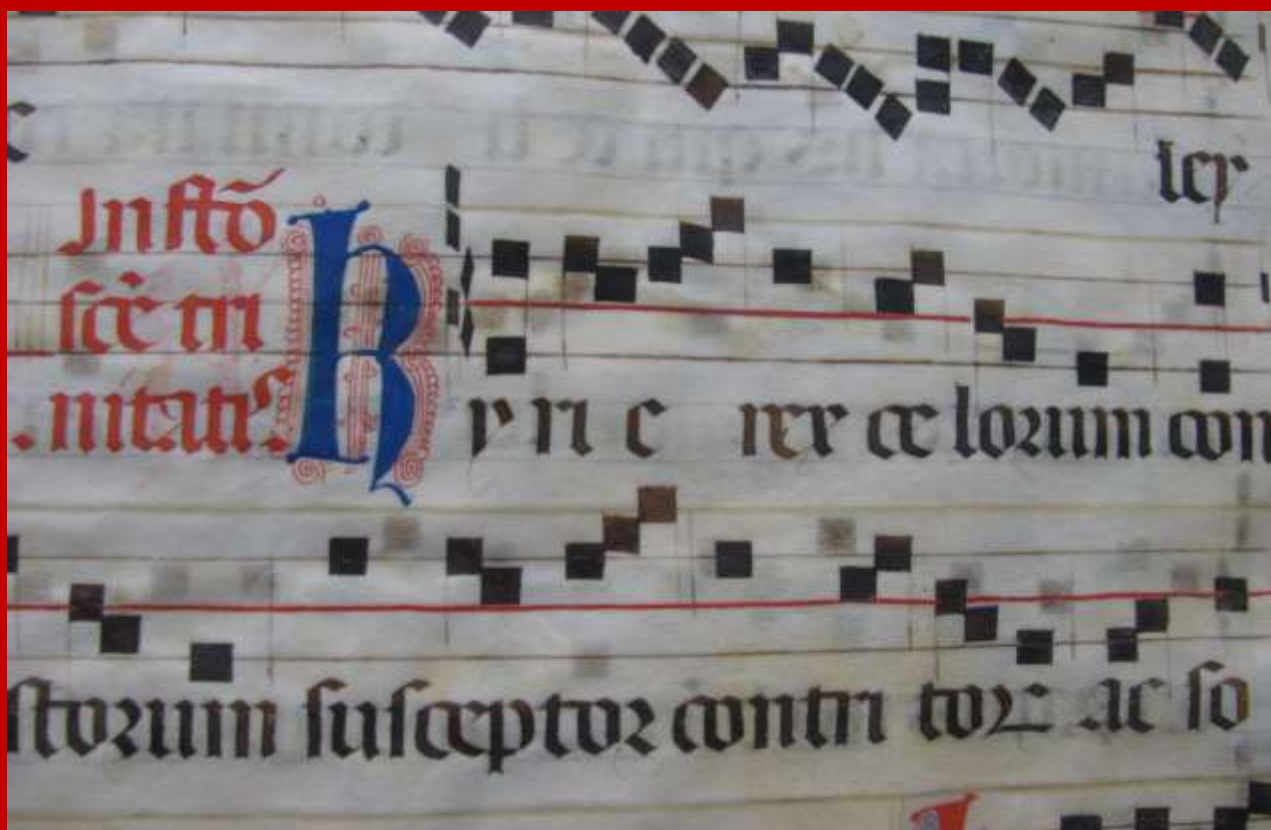 ler
In festo
sce tri
nitatis.
Kyri e rex celorum con
storum susceptor contri tor ac so